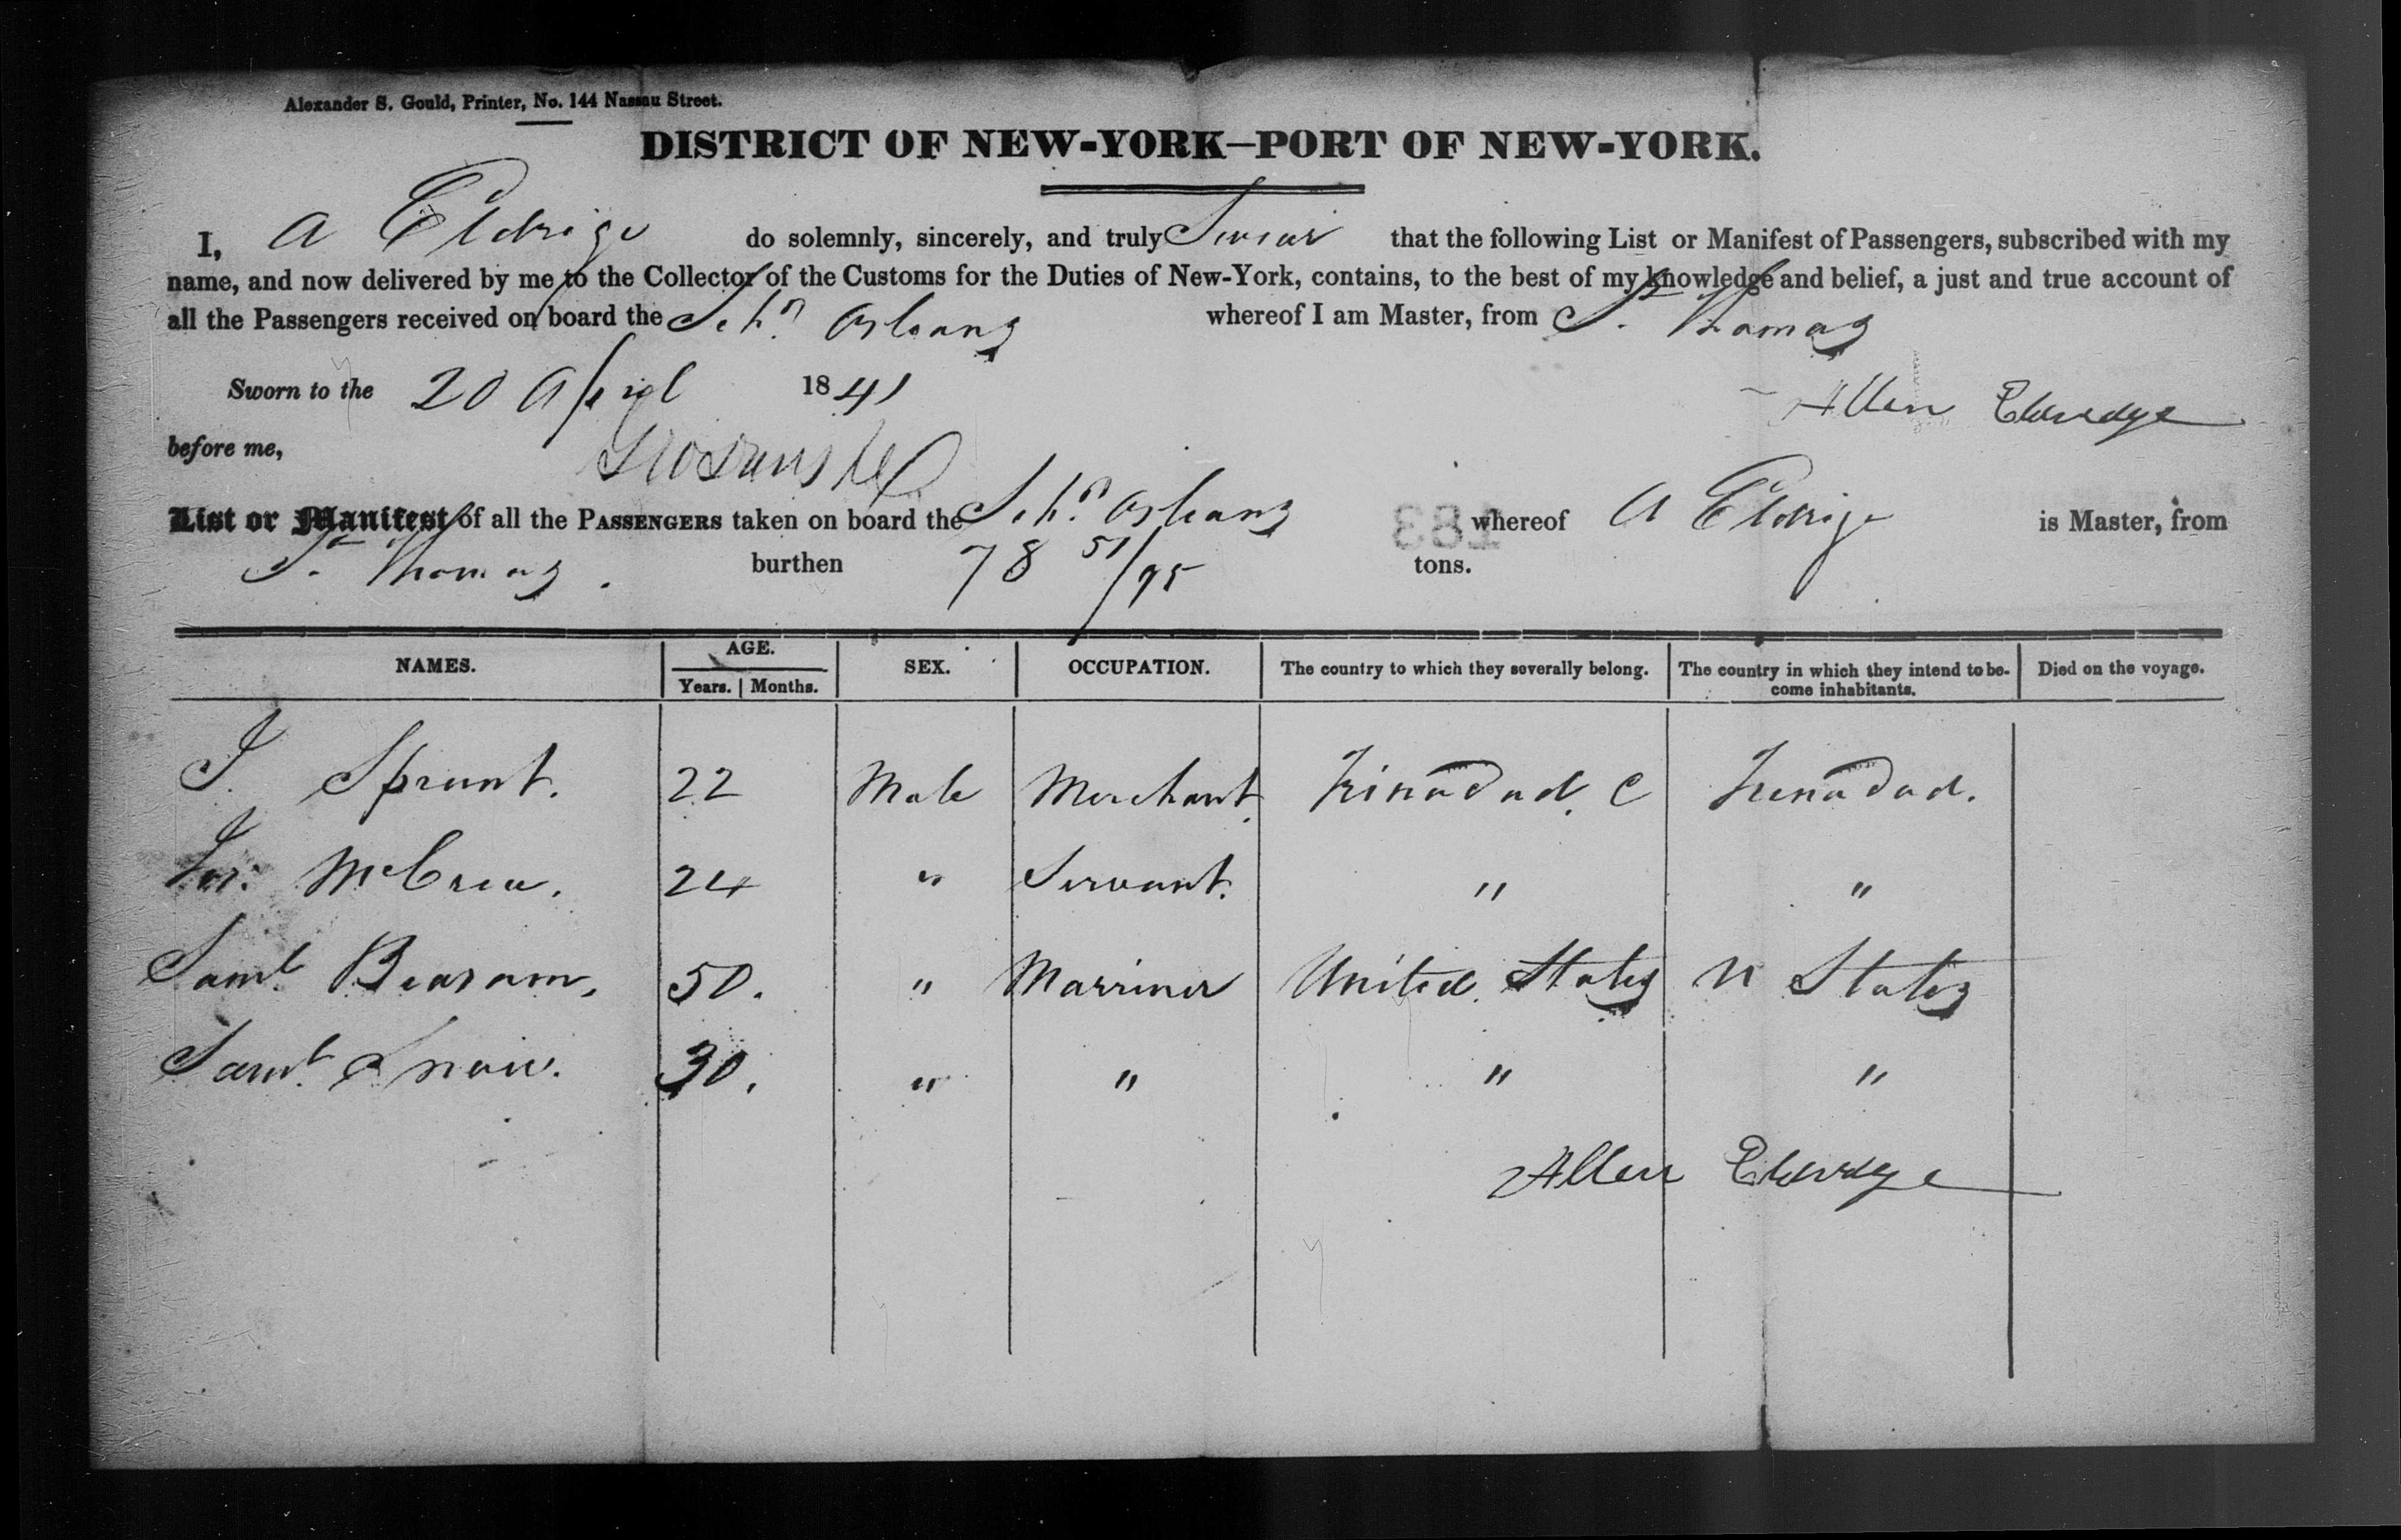 Alexander S. Gould, Printer, No. 144 Nassau Street.
DISTRICT OF NEW-YORK–PORT OF NEW-YORK.
I, A Eldrige do solemnly, sincerely, and truly Swear that the following List or Manifest of Passengers, subscribed with my
name, and now delivered by me to the Collector of the Customs for the Duties of New-York, contains, to the best of my knowledge and belief, a just and true account of
all the Passengers received on board the Schr. Orleans whereof I am Master, from St. Thomas
Sworn to the 20 April 1841 Allen Eldredge
before me,
List or Manifest of all the PASSENGERS taken on board the Schr. Orleans whereof A Eldrige is Master, from
St. Thomas. burthen 78 51/95 tons.
NAMES. AGE. SEX. OCCUPATION. The country to which they severally belong. The country in which they intend to be- Died on the voyage.
Years. Months. come inhabitants.
J. Sprunt. 22 Male Merchant. Trinadad. C Trenadad.
Jas. McCrea. 24 " Servant. " "
Saml. Bearam, 50. " Marriner United States U States
Saml. Snow. 30. " " " "
Allen Eldredge